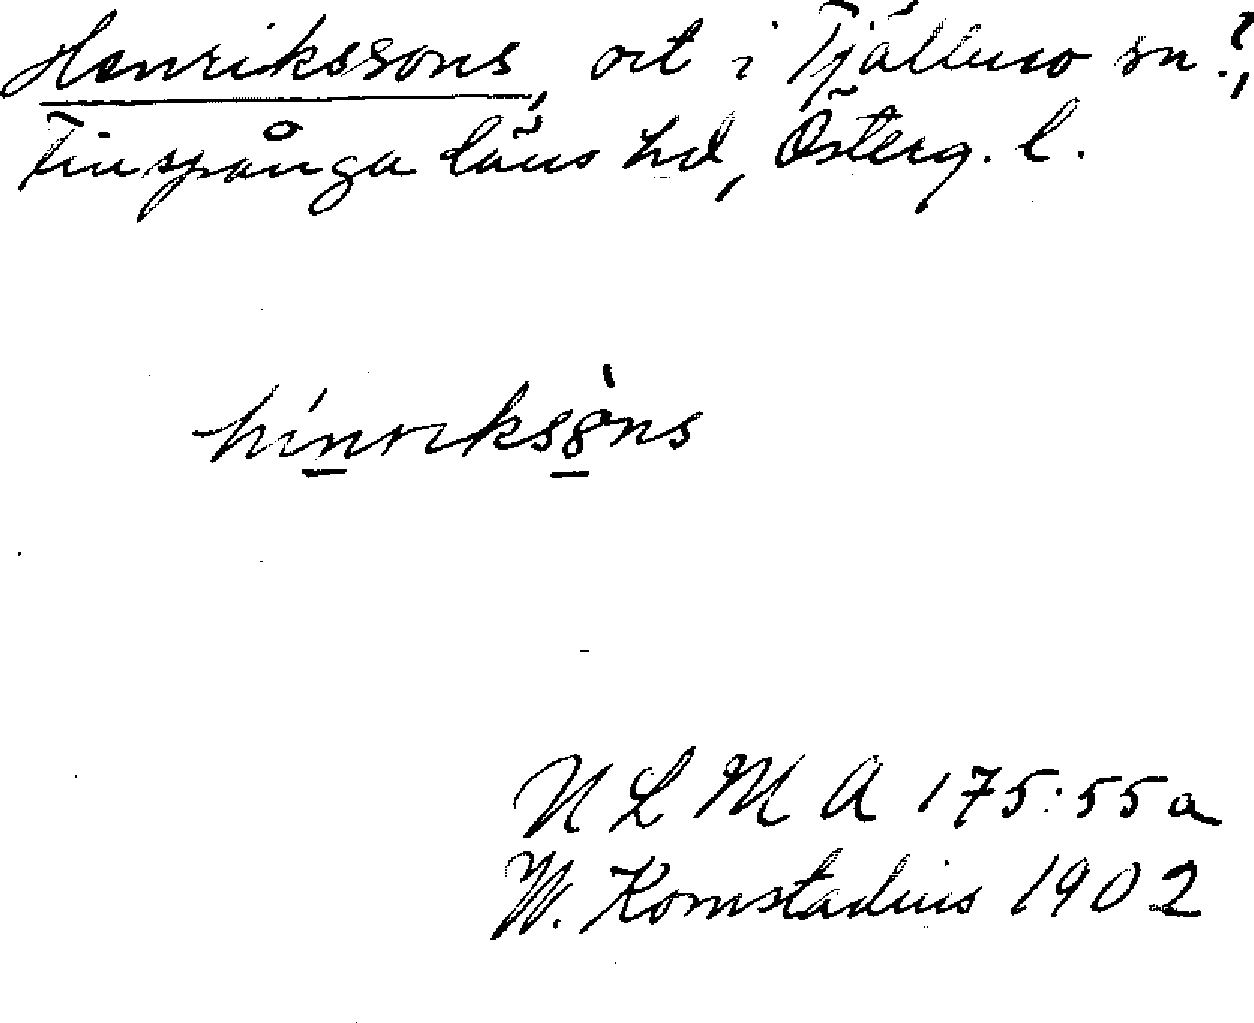 Henrikssons, ort i Tjällmo sn?,
Finspånga läns hd, Österg. l.
hínrıksò̱ns
N L M A 175:55a
W. Komstadius 1902